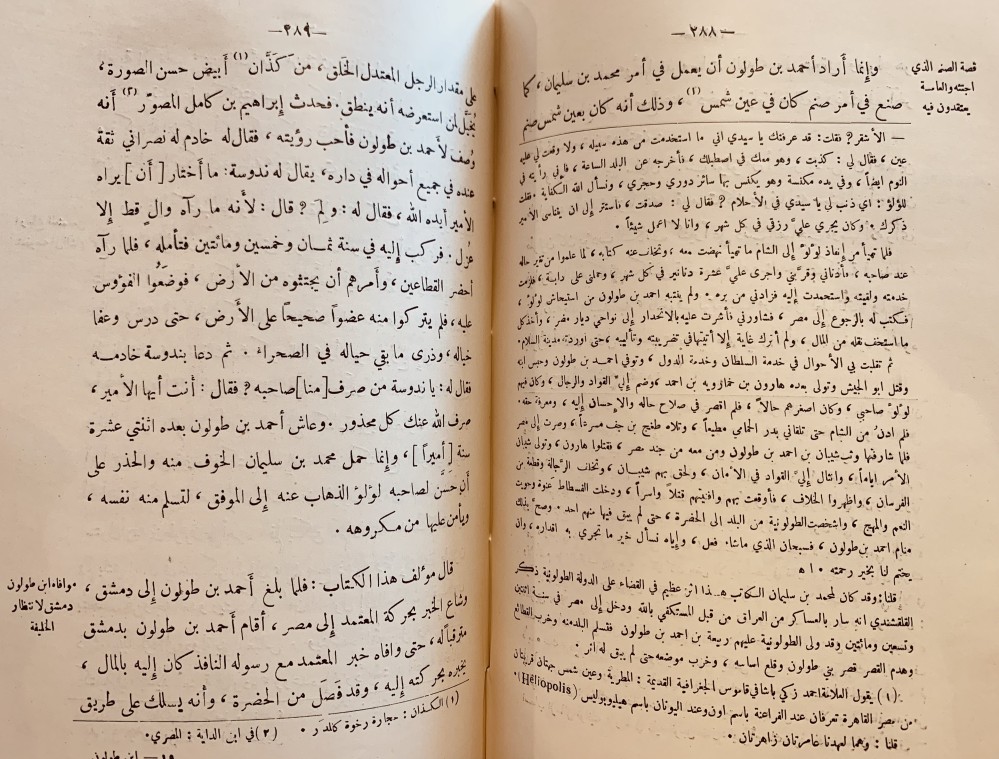 — ٢٨٨ —
قصة الصنم الذي
اجتثه والعاسة
يعتقدون فيه
وإنما أراد أحمد بن طولون أن يعمل في أمر محمد بن سليمان، كما
صنع في أمر صنم كان في عين شمس (١)، وذلك أنه كان بعين شمس صنم
— الأشقر؟ فقلت: قد عرفتك يا سيدي اني ما استخدمت من هذه سبيله، ولا وقعت لي عليه
عين، فقال لي: كذبت، وهو معك في اصطبلك، فأخرجه عن البلد الساعة، فاني رأيته في
النوم ايضاً، وفي يده مكنسة وهو يكنس بها سائر دوري وحجري، ونسأل الله الكفاية. فقلت
للؤلؤ: اي ذنب لي يا سيدي في الأحلام؟ فقال لي: صدقت، فاستتر إلى ان يتناسى الأمير
ذكرك. وكان يجري عليَّ رزقي في كل شهر، وانا لا اعمل شيئاً.
فلما تهيأ من إنفاذ لؤلؤ إلى الشام ما تهيأ نهضت معه، وتخاف عنه كتابه، لما علموا من تغير حاله
عند صاحبه، فأدناني وقرَّبني واجرى عليَّ عشرة دنانير في كل شهر، وحملني على دابة، فلزمت
خدمته ولقيته واستحمدت إليه فزادني من بره. ولم ينتبه احمد بن طولون من استيحاش لؤلؤ،
فكتب له بالرجوع إلى مصر، فشاورني فأشرت عليه بالانحدار إلى نواحي ديار مضر، وأخذ كل
ما استخف نقله من المال، ولم أترك غاية إلا أتيتها في تضريبه وتأليبه، حتى اوردته مدينة السلام.
ثم تقلبت بي الأحوال في خدمة السلطان وخدمة الدول، وتوفي احمد بن طولون وحبس ابنه
وقتل ابو الجيش وتولى بعده هارون بن خمارويه بن احمد، وضم إليَّ القواد والرجال، وكان فيهم
لؤلؤ صاحبي، وكان اصغرهم حالاً، فلم اقصر في صلاح حاله والإحسان إليه، ومعرفة حقه.
فلم ادن من الشام حتى تلقاني بدر الحمامي مطيعاً، وتلاه طغج بن جف مسرعاً، وسرت إلى مصر
فلما شارفتها وثب شيبان بن احمد بن طولون ومن معه من جند مصر، فقتلوا هارون، وتولى شيبان
الأمر اياماً، وانثال إليَّ القواد في الأمان، ولحق بهم شيبان، وتخاف الرجالة وقطعة من
الفرسان، واظهروا الخلاف، فأوقعت بهم وافنيتهم قتلاً واسراً، ودخلت الفسطاط عنوة وحويت
النعم والمهج، واشخصت الطولونية من البلد الى الحضرة، حتى لم يبق فيها منهم احد. وصح بذلك
منام احمد بن طولون، فسبحان الذي ماشاء فعل، وإياه نسأل خير ما تجري به اقداره، وان
يختم لنا بخير رحمته. اه
قلنا: وقد كان لمحمد بن سليمان الكاتب هذا اثر عظيم في القضاء على الدولة الطولونية ذكر
القلقشندي انه سار بالعساكر من العراق من قبل المستكفي بالله ودخل إلى مصر في سنة اثنتين
وتسعين ومائتين وقد ولى الطولونية عليهم ربيعة بن احمد بن طولون فتسلم البلد منه وخرب القطائع
وهدم القصر قصر بني طولون وقلع اساسه، وخرب موضعه حتى لم يبق له أثر.
(١) يقول العلامة احمد زكي باشا في قاموس الجغرافية القديمة: المطرية وعين شمس جهتان قريبتان
من مصر القاهرة تعرفان عند الفراعنة باسم اون وعند اليونان باسم هيليوبوليس (Héliopolis).
قلنا: وهما لعهدنا عامرتان زاهرتان.
— ٢٨٩ —
على مقدار الرجل المعتدل الخَلق، من كَذَّان (١) أبيض حسن الصورة،
يُخيَّل لمن استعرضه أنه ينطق. فحدث إبراهيم بن كامل المصوّر (٢) أنه
وُصف لأحمد بن طولون فأحب رؤيته، فقال له خادم له نصراني ثقة
عنده في جميع أحواله في داره، يقال له ندوسة: ما أختار [أن] يراه
الأمير أيده الله، فقال له: ولِمَ؟ قال: لأنه ما رآه والٍ قط إلا
عُزل. فركب إليه في سنة ثمان وخمسين ومائتين فتأمله، فلما رآه
أحضر القطاعين، وأمرهم أن يجتثوه من الأرض، فوضعُوا الفؤوس
عليه، فلم يتركوا منه عضواً صحيحاً على الأرض، حتى درس وعفا
خياله، وذرى ما بقي حياله في الصحراء. ثم دعا بندوسة خادمه
فقال له: يا ندوسة من صرف [منا] صاحبه؟ فقال: أنت أيها الأمير،
صرف الله عنك كل محذور. وعاش أحمد بن طولون بعده اثنتي عشرة
سنة [أميراً]، وإنما حمل محمد بن سليمان الخوف منه والحذر على
أن حسَّن لصاحبه لؤلؤ الذهاب عنه إلى الموفق، لتسلم منه نفسه،
ويأمن عليها من مكروهه.
موافاة ابن طولون
دمشق لانتظار
الخليفة
قال مؤلف هذا الكتاب: فلما بلغ أحمد بن طولون إلى دمشق،
وشاع الخبر بحركة المعتمد إلى مصر، أقام أحمد بن طولون بدمشق
مترقباً له، حتى وافاه خبر المعتمد مع رسوله النافذ كان إليه بالمال،
يخبره بحركته إليه، وقد فَصَلَ من الحضرة، وأنه يسلك على طريق
(١) الكذان: حجارة رخوة كالمدر. (٢) في ابن الداية: المصري.
١٩ — ابن طولون